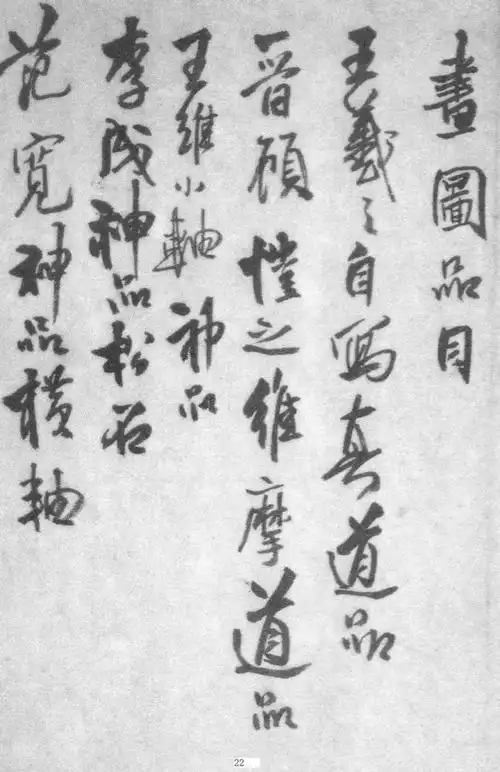 畫圖品目
王羲之自寫真道品
晉顧愷之維摩道品
王維小軸神品
李成神品松石
范寬神品横軸
22